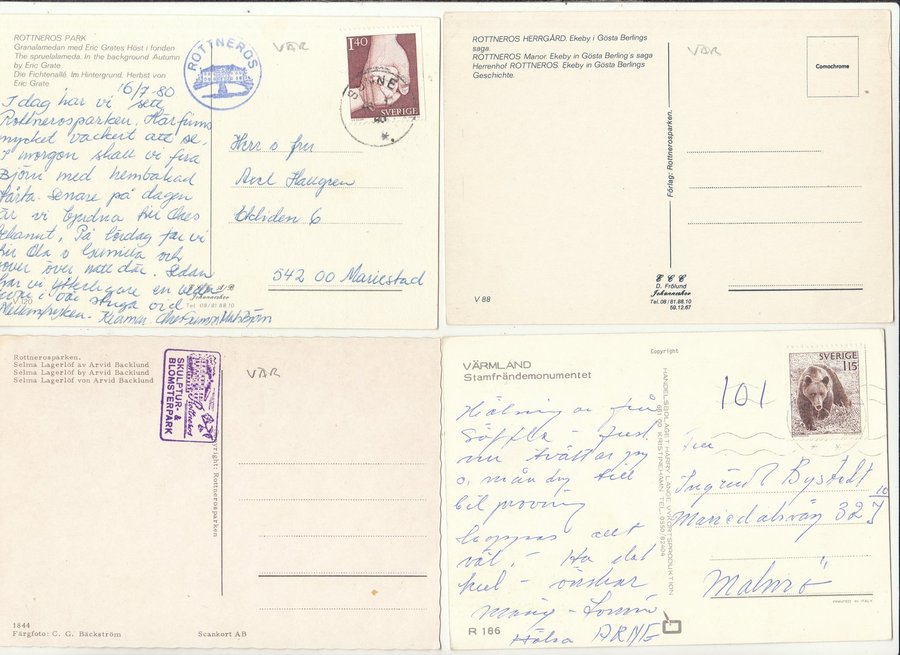 ROTTNEROS PARK
Granalamedan med Eric Grates Höst i fonden
The spruelalameda. In the background Autumn
by Eric Grate
Die Fichtenallé. Im Hintergrund. Herbst von
Eric Grate
ROTTNEROS
VÄR
1.40
SVERIGE
SUNNE
16/7-80
I dag har vi sett
Rottnerosparken. Här finns
mycket vackert att se.
I morgon skall vi fira
Björn med hembakad
tårta. Senare på dagen
är vi bjudna till
bekant. På lördag far vi
till Ola o Gunilla och
över natt där. Sedan
har vi ytterligare en vecka
i vår stuga vid
Mellanfryken. Kramar
Herr o fru
Axel Hallgren
Ekliden 6
542 00 Mariestad
Johanneshov
Tel. 08/81.88.10
V 120
ROTTNEROS HERRGÅRD. Ekeby i Gösta Berlings
saga.
ROTTNEROS Manor. Ekeby in Gösta Berling's saga
Herrenhof ROTTNEROS. Ekeby in Gösta Berlings
Geschichte.
VÄR
Comochrome
Förlag: Rottnerosparken.
E C C
D. Frölund
Johanneshov
Tel. 08/81.88.10
59.12.67
V 88
Rottnerosparken.
Selma Lagerlöf av Arvid Backlund
Selma Lagerlöf by Arvid Backlund
Selma Lagerlöf von Arvid Backlund
SKULPTUR- &
BLOMSTERPARK
Rottneros
VÄR
Copyright: Rottnerosparken
1844
Färgfoto: C. G. Bäckström
Scankort AB
VÄRMLAND
Stamfrändemonumentet
Copyright
101
SVERIGE
115
HANDELSBOLAGET HARRY LANGE VYKORTSPRODUKTION
681 00 KRISTINEHAMN TEL. 0550/82404
Hälsningar från
Säffle - Just
nu tvättar jag
o. måndag till
bilprovning
hoppas allt
väl. - Ha det
kul - önskar
Hälsa ARNE
Fru
Ingrid Bystedt
Mariedalsväg 32 J
Malmö
PRINTED IN ITALY
R 186